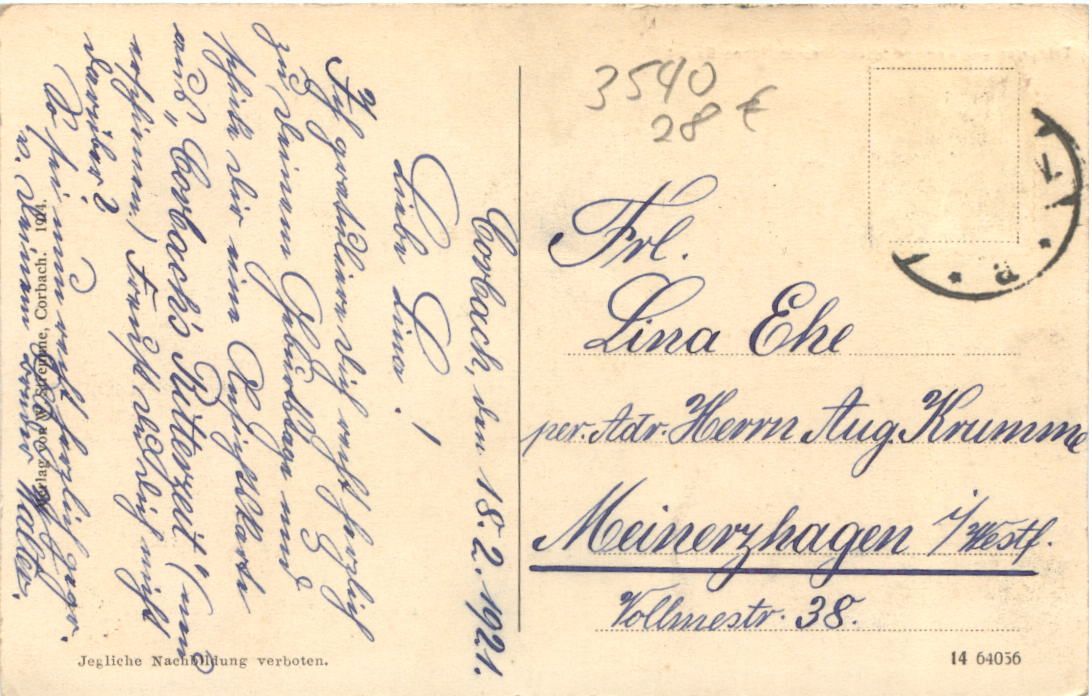 Corbach, den 18.2.1921.
Liebe Lina!
Ich gratuliere Dich recht herzlich
zu Deinem Geburtstage und
schicke Dir eine Ansichtskarte
aus „Corbach's Ritterzeit" (vom
Freust Du Dich nicht
darüber?
So sei nun recht herzlich gegr.
v. Deinem Walter.
Verlag von W. Streппme, Corbach. 1914.
Jegliche Nachbildung verboten.
3540
28 €
Frl.
Lina Ehe
per. Adr. Herrn Aug. Krumme
Meinerzhagen i/Westf.
Vollmestr. 38.
14 64056